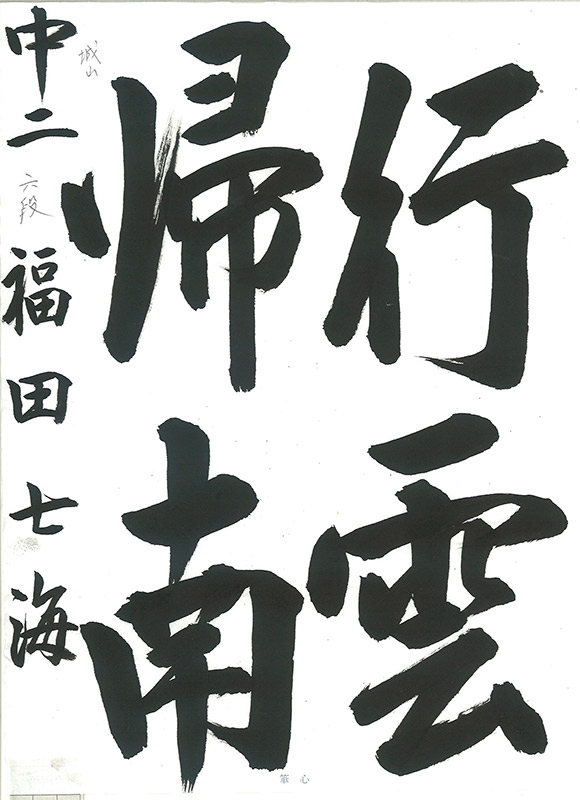 行雲
帰南
中二 六段 福田七海
城山
心筆